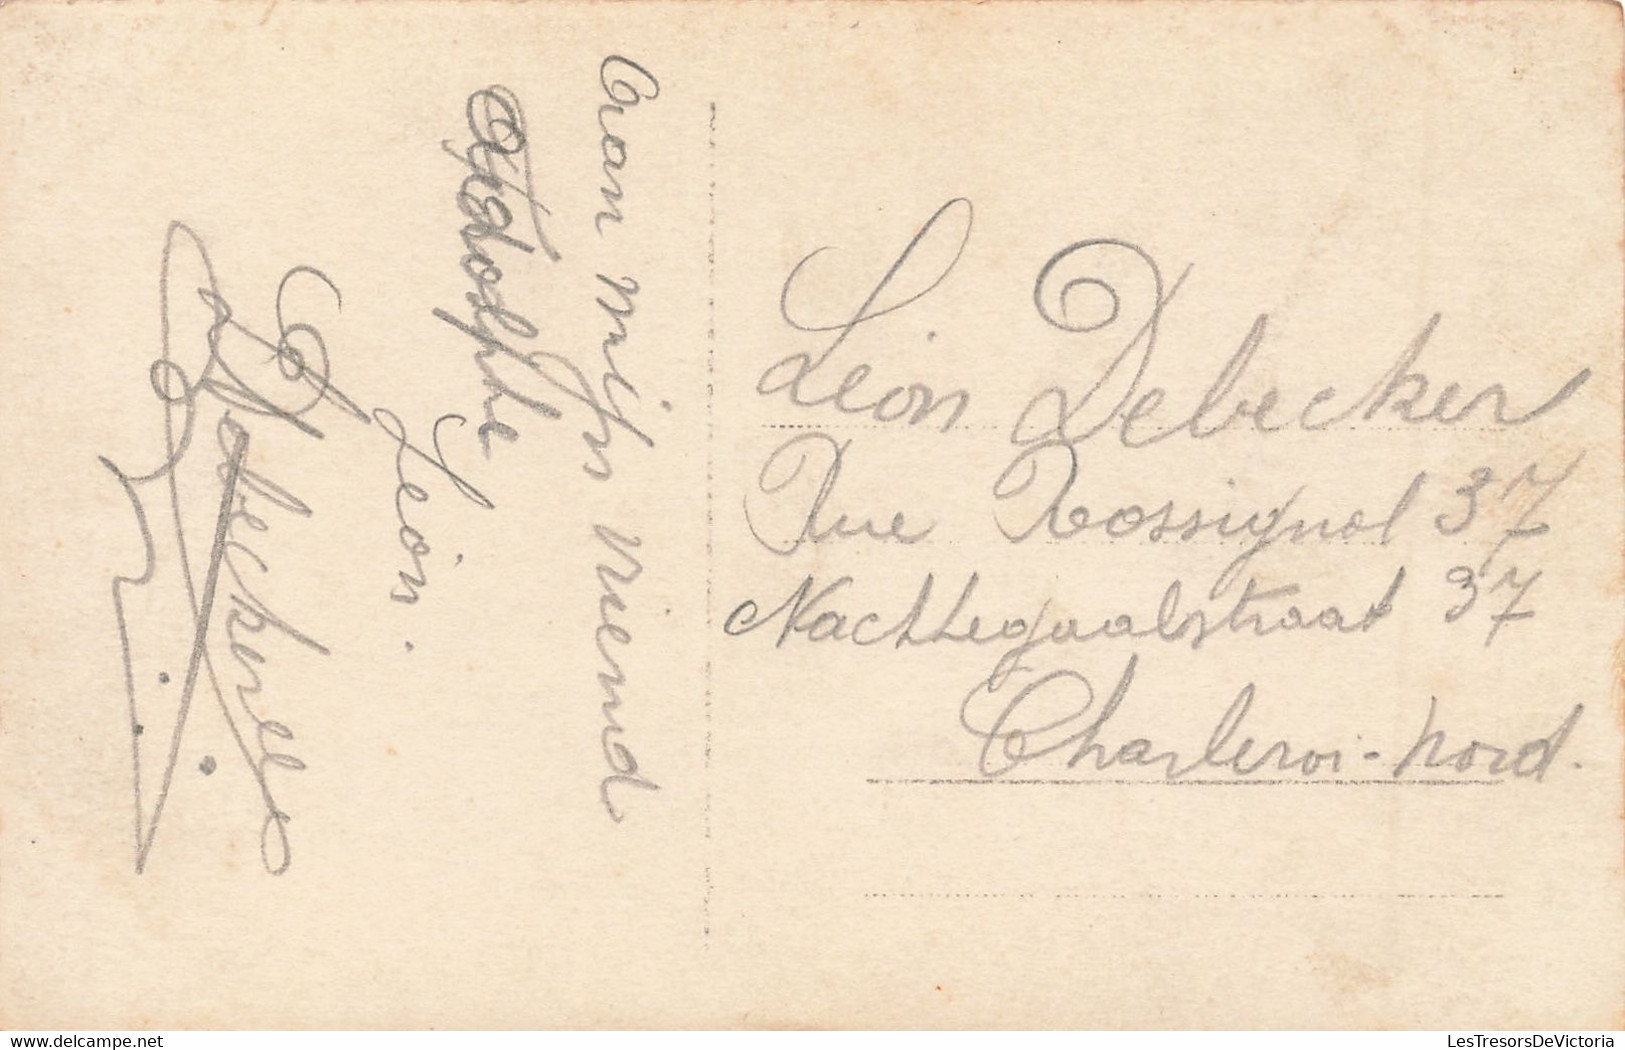 Aan mijn vriend
Adolphe
Leon.
Debecker
Leon Debecker
Rue Rossignol 37
Nachtegaalstraat 37
Charleroi-Nord.
LesTresorsDeVictoria